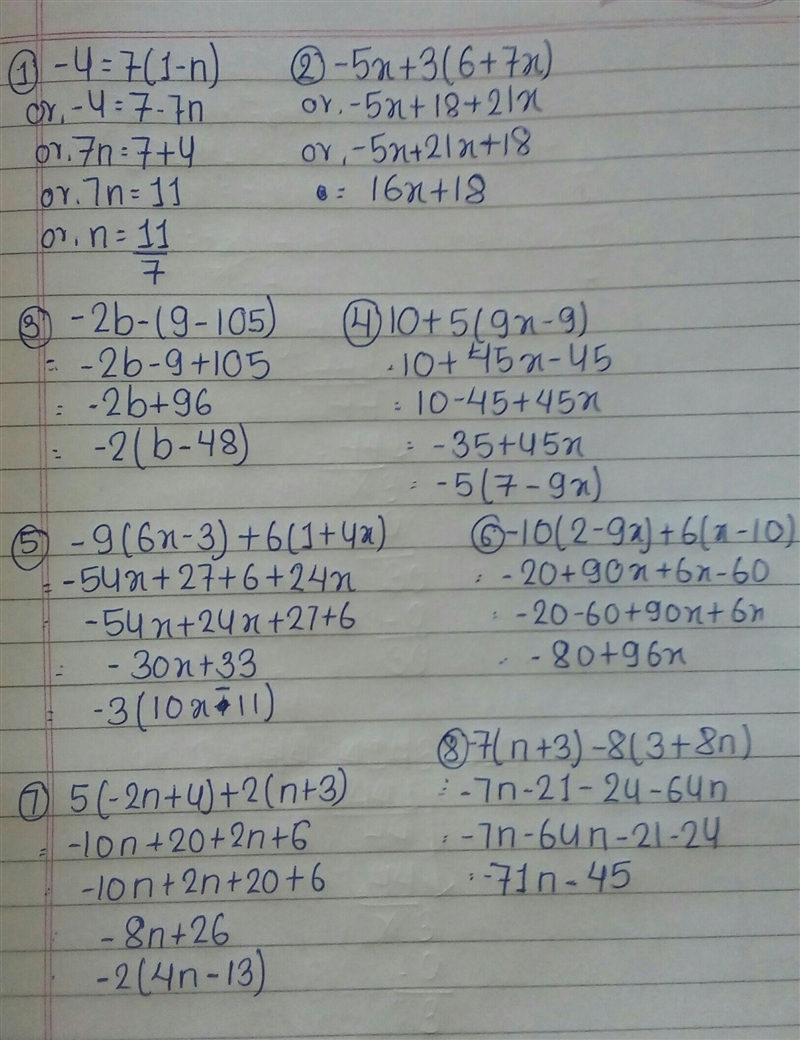 ① -4=7(1-n)
or, -4=7-7n
or. 7n=7+4
or. 7n=11
or, n=11/7
② -5x+3(6+7x)
or. -5x+18+21x
or, -5x+21x+18
= 16x+18
③ -2b-(9-105)
= -2b-9+105
= -2b+96
= -2(b-48)
④ 10+5(9x-9)
10+45x-45
= 10-45+45x
= -35+45x
= -5(7-9x)
⑤ -9(6x-3)+6(1+4x)
= -54x+27+6+24x
-54x+24x+27+6
= -30x+33
= -3(10x-11)
⑥ -10(2-9x)+6(x-10)
= -20+90x+6x-60
= -20-60+90x+6x
= -80+96x
⑦ 5(-2n+4)+2(n+3)
= -10n+20+2n+6
-10n+2n+20+6
-8n+26
-2(4n-13)
⑧ -7(n+3)-8(3+8n)
= -7n-21-24-64n
= -7n-64n-21-24
= -71n-45